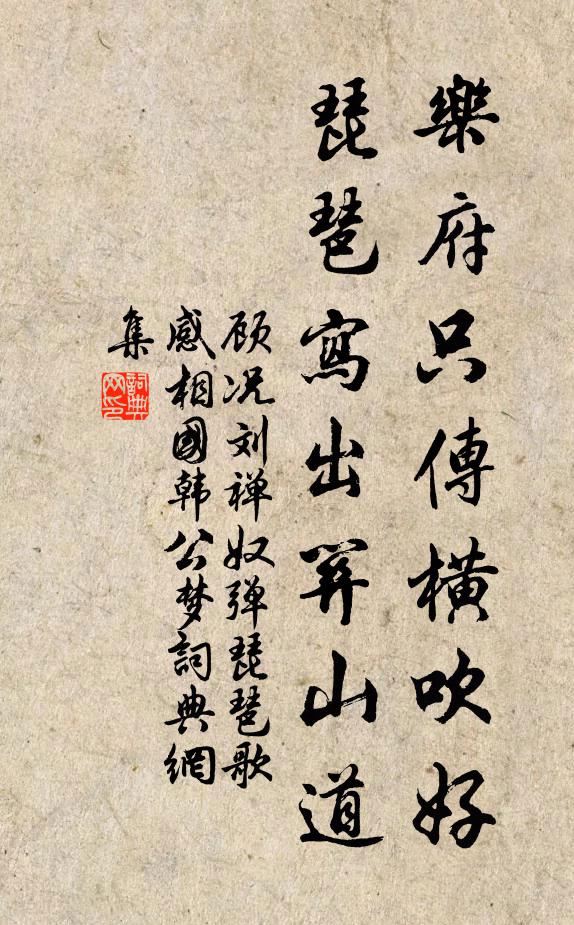 樂府只傳横吹好
琵琶寫出關山道
顾况刘禅奴弹琵琶歌
感相國韩公梦詞典網
集
詞典
网印